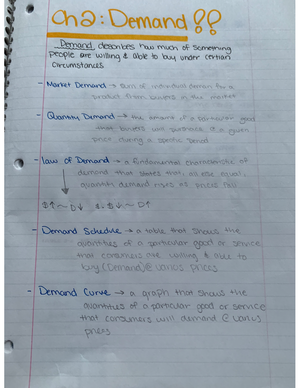 Ch 2: Demand !!
Demand describes how much of something
people are willing & able to buy under certian
circumstances
- Market Demand → sum of individual deman for a
product from buyers in the market
- Quantity Demand → the amount of a particular good
that buyers will purchase @ a given
price during a specific period
- Law of Demand → a fundamental characteristic of
demand that states that, all else equal,
quantity demand rises as prices fall
$↑ ~ D↓ & $↓ ~ D↑
- Demand Schedule → a table that shows the
quantities of a particular good or service
that consumers are willing & able to
buy (Demand) @ various prices
- Demand Curve → a graph that shows the
quantities of a particular good or service
that consumers will demand @ various
prices